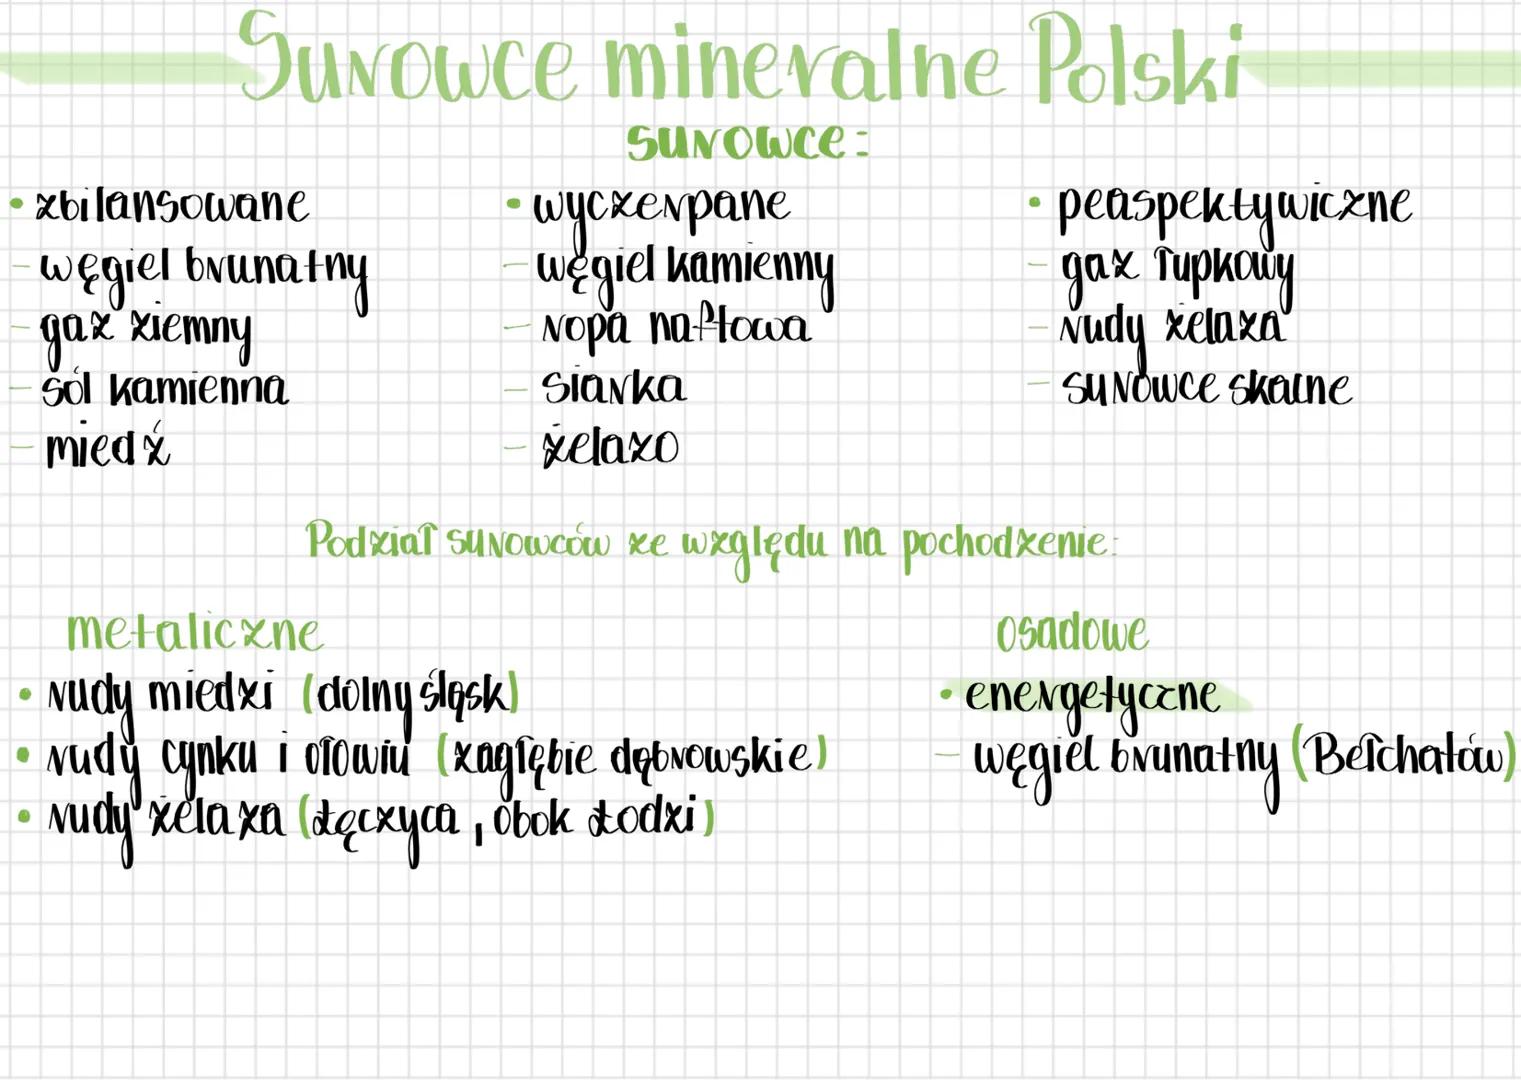 Surowce mineralne Polski
surowce:
• zbilansowane
- węgiel brunatny
- gaz ziemny
- sól kamienna
- miedź
• wyczerpane
- węgiel kamienny
- ropa naftowa
- siarka
- żelazo
• peaspektywiczne
- gaz łupkowy
- rudy żelaza
- surowce skalne
Podział surowców ze względu na pochodzenie:
metaliczne
• rudy miedzi (dolny śląsk)
• rudy cynku i ołowiu (zagłębie dąbrowskie)
• rudy żelaza (łęczyca, obok Łodzi)
osadowe
• energetyczne
- węgiel brunatny (Bełchatów)